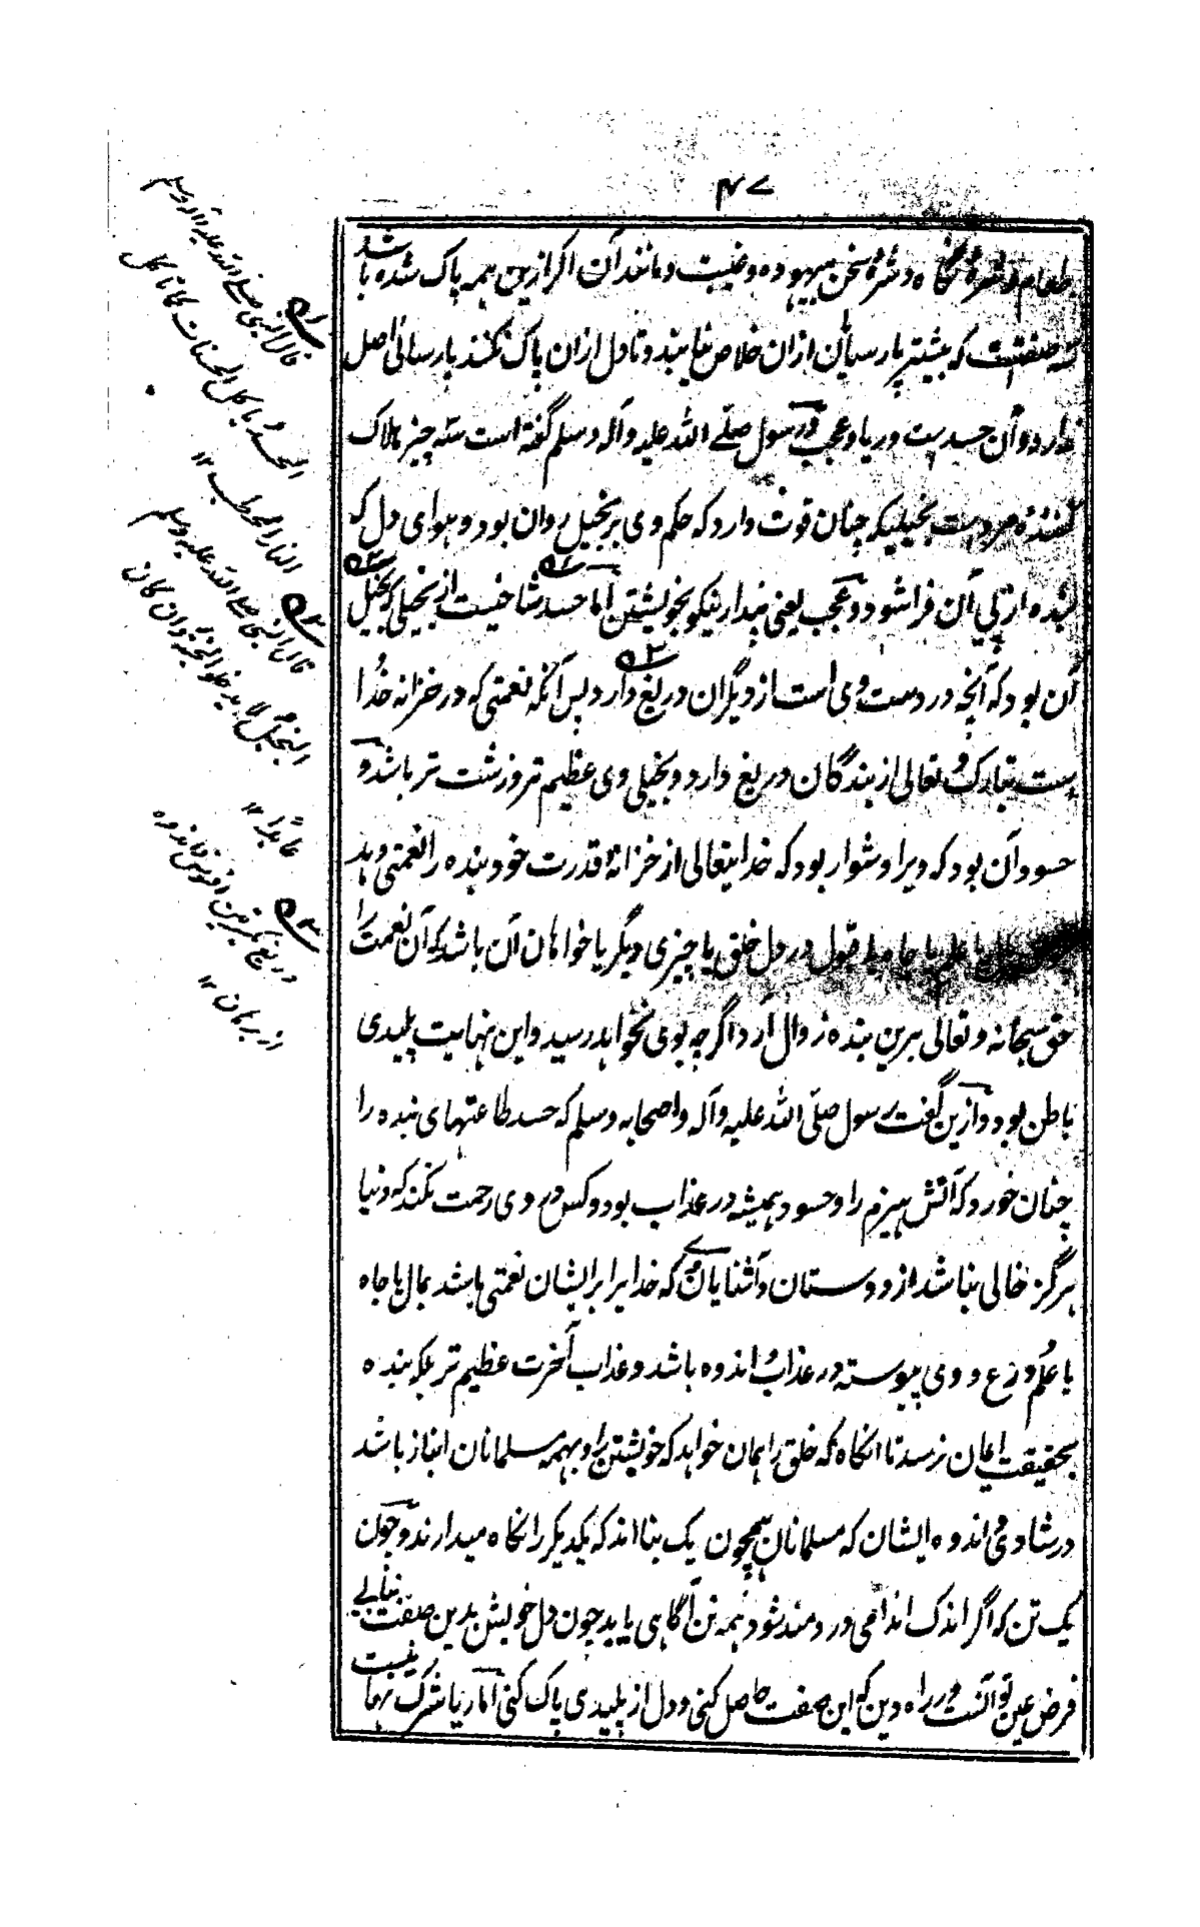 ۴۷
طعام و شره نگاه و شره سخن بیهوده و غیبت و مانند آن اگر ازین همه پاک شده باشد
سه صفتست که بیشتر پارسایان ازان خلاص نیابند و تا دل ازان پاک نکنند پارسائی اصل
ندارد و آن حسد ست و ریا و عجب و رسول صلے الله علیه و آله وسلم گفته است سه چیز هلاک
کننده مردست بخیلیکه چنان قوت دارد که حکم وی بر بخیل روان بود و هوای دل که
بنده از پی آن فرا شود و عجب یعنی پندار نیکو بخویشتن اما حسد شاخیست از بخیلی که بخیل
آن بود که آنچه در دست وی است از دیگران دریغ دارد پس آنکه نعمتی که در خزانه خدا
یست تبارک و تعالی از بندگان دریغ دارد و بخیلی وی عظیم تر و زشت تر باشد و
حسود آن بود که ویرا دشوار بود که خدایتعالی از خزانهٔ قدرت خود بنده را نعمتی دهد
مال یا علم یا جاه یا قبول در دل خلق یا چیزی دیگر یا خواهان آن باشد که آن نعمت را
حق سبحانه و تعالی برین بنده زوال آرد اگرچه بوی نخواهد رسید و این نهایت پلیدی
باطن بود و ازین گفت رسول صلّی الله علیه و آله و اصحابه وسلم که حسد طاعتهای بنده را
چنان خورد که آتش هیزم را و حسود همیشه در عذاب بود و کس بر وی رحمت نکند که دنیا
هرگز خالی نباشد از دوستان و آشنایان که خدایرا بر ایشان نعمتی باشد بمال یا جاه
یا علم و ورع و وی پیوسته در عذاب اندوه باشد و عذاب آخرت عظیم تر بلکه بنده
بحقیقت ایمان نرسد تا آنگاه که خلق را همان خواهد که خویشتن را و بهمه مسلمانان انباز باشد
در شادی و اندوه ایشان که مسلمانان همچون یک بنا اند که یکدیگر را نگاه میدارند و چون
یک تن که اگر اندک اندامی دردمند شود همه تن آگاهی یابد چون دل خویش بدین صفت نیابی
فرض عین تو آنست در راه دین که این صفت حاصل کنی و دل از پلیدی پاک کنی اما ریا شرک نهانیست
قال النبی صلی الله علیه وآله وسلم
الحسد یاکل الحسنات کما تاکل
النار الحطب ۱۲
قال النبی صلی الله علیه وسلم
البخیل لا یدخل الجنة وان کان
عابدًا ۱۲